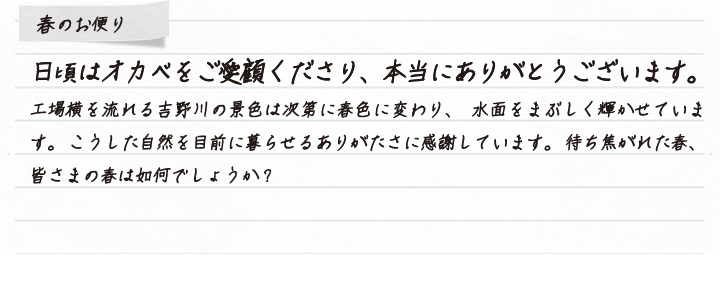 春のお便り
日頃はオカベをご愛顧くださり、本当にありがとうございます。
工場横を流れる吉野川の景色は次第に春色に変わり、 水面をまぶしく輝かせていま
す。こうした自然を目前に暮らせるありがたさに感謝しています。待ち焦がれた春、
皆さまの春は如何でしょうか?